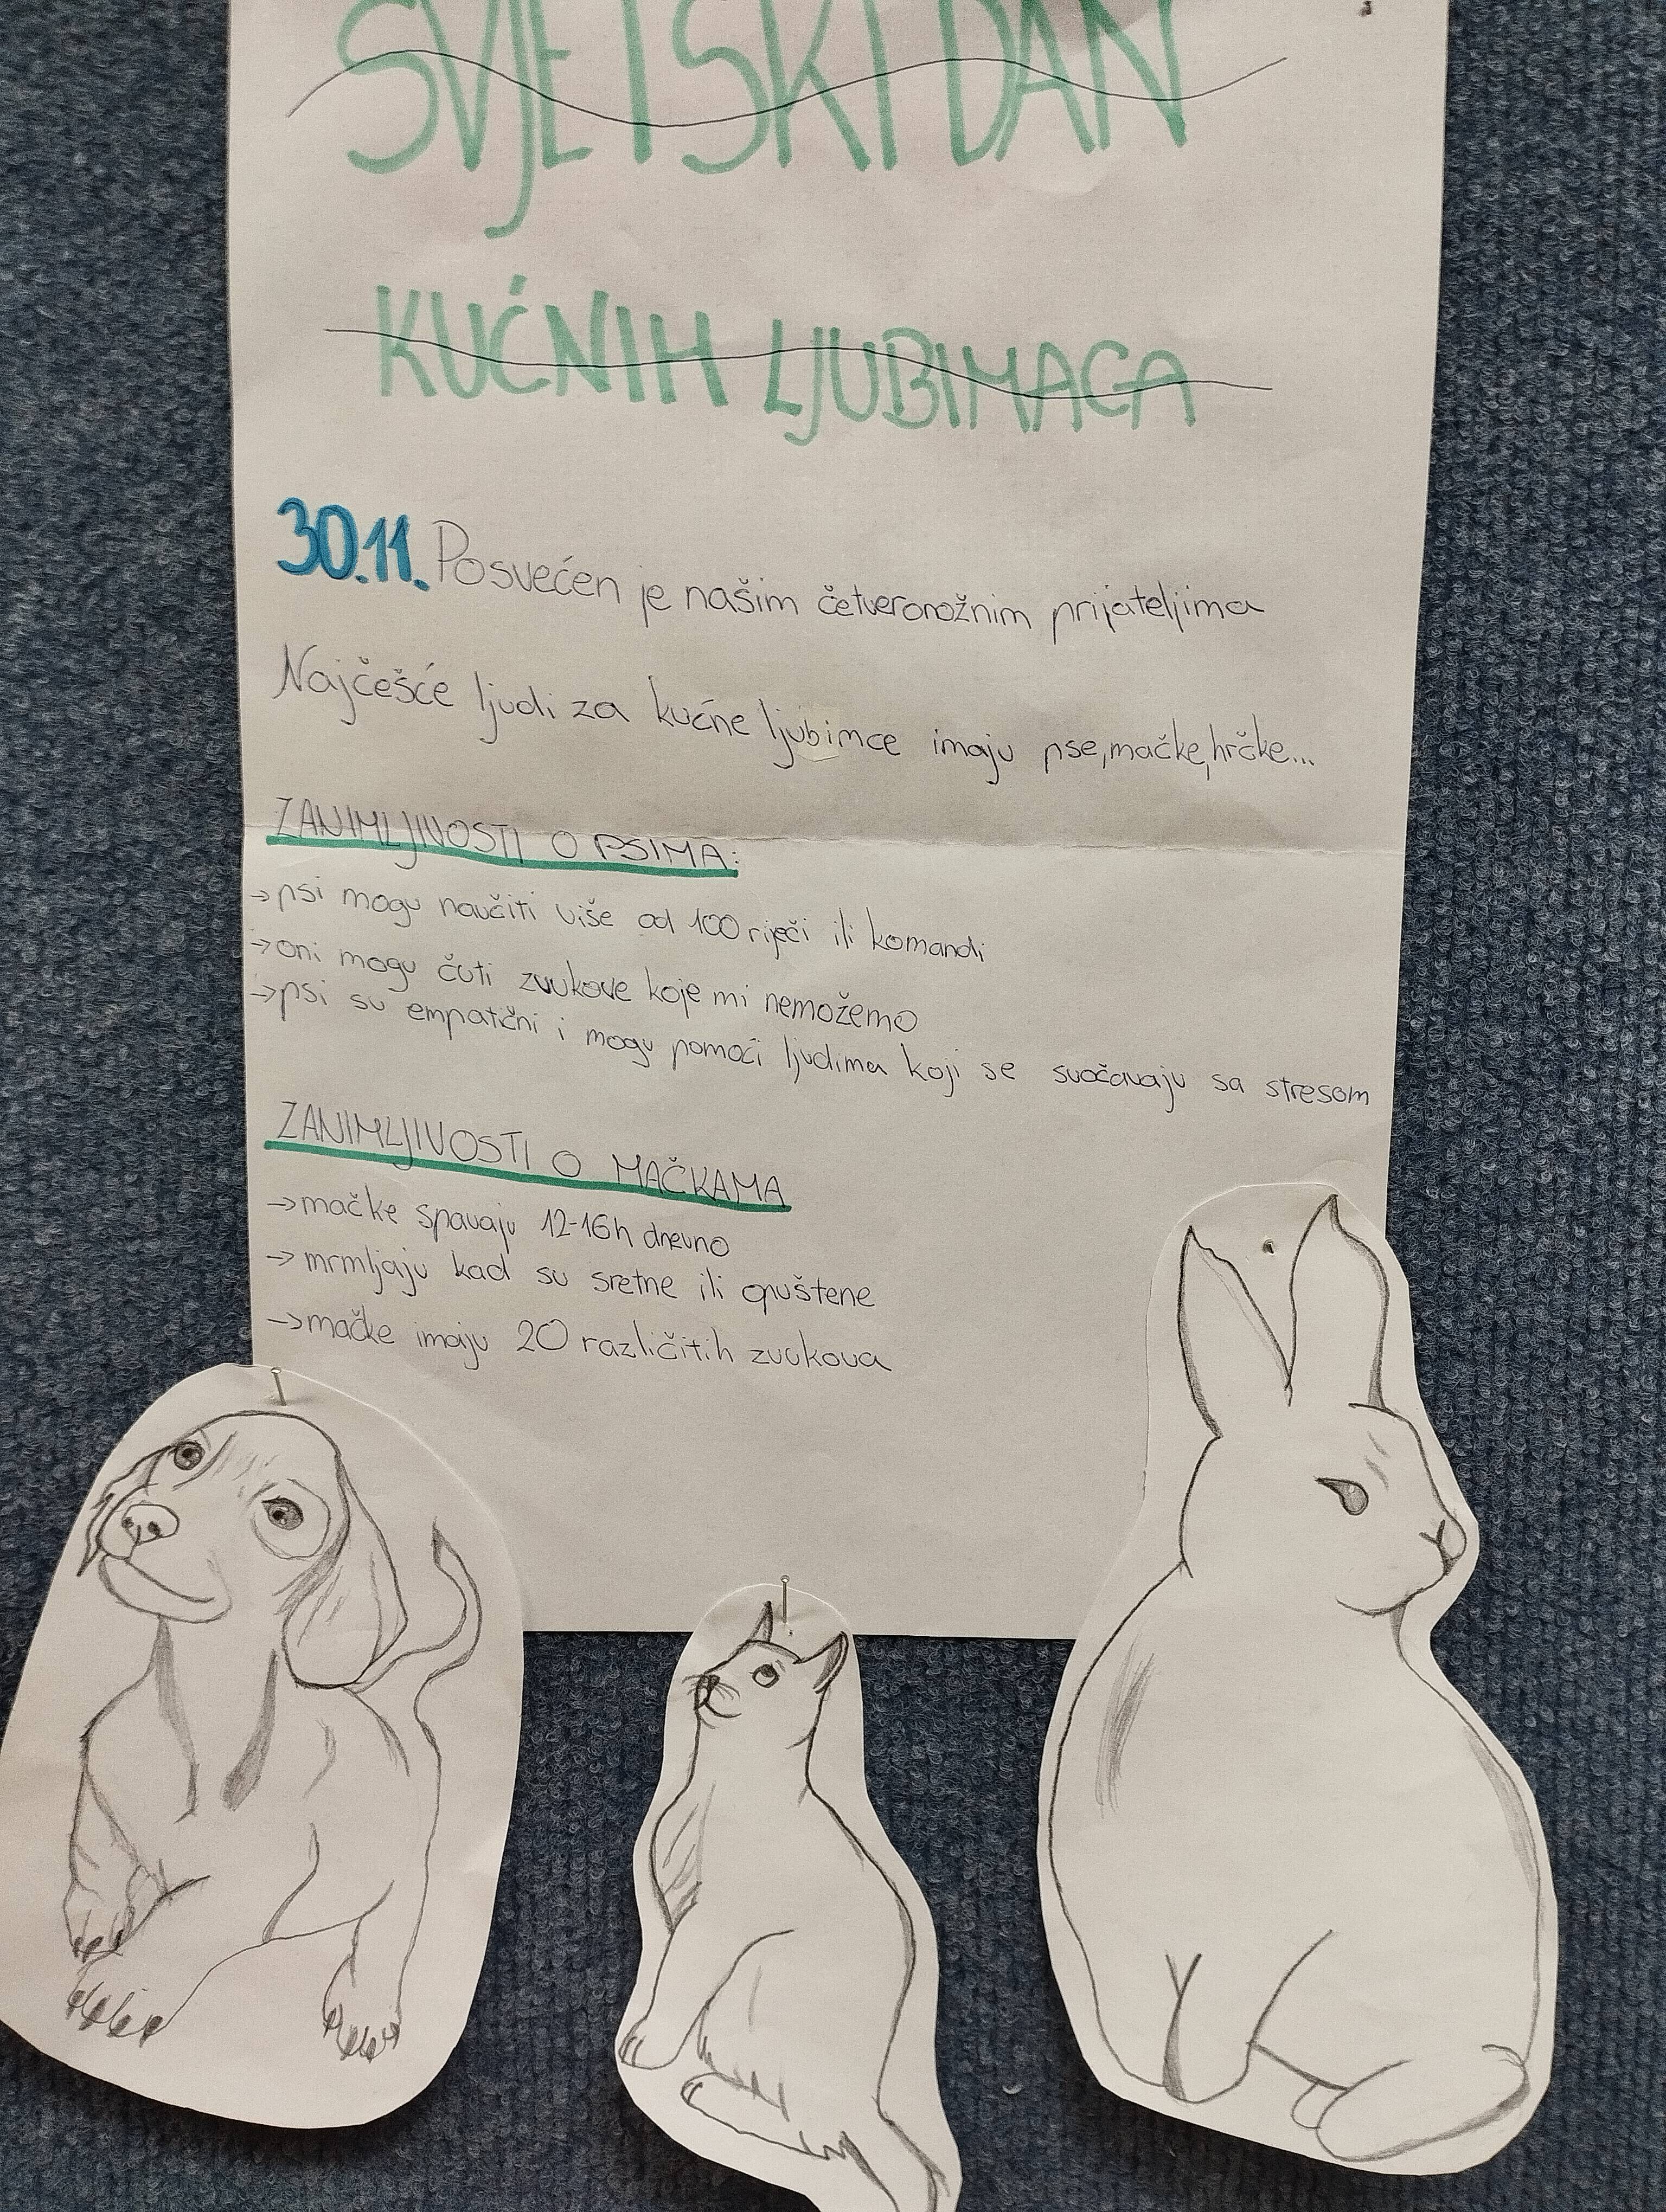 SVJETSKI DAN
KUĆNIH LJUBIMACA
30.11. Posvećen je našim četveronožnim prijateljima
Najčešće ljudi za kućne ljubimce imaju pse,mačke,hrčke...
ZANIMLJIVOSTI O PSIMA:
→psi mogu naučiti više od 100 riječi ili komandi
→oni mogu čuti zvukove koje mi nemožemo
→psi su empatični i mogu pomoći ljudima koji se suočavaju sa stresom
ZANIMLJIVOSTI O MAČKAMA
→mačke spavaju 12-16h dnevno
→mrmljaju kad su sretne ili opuštene
→mačke imaju 20 različitih zvukova